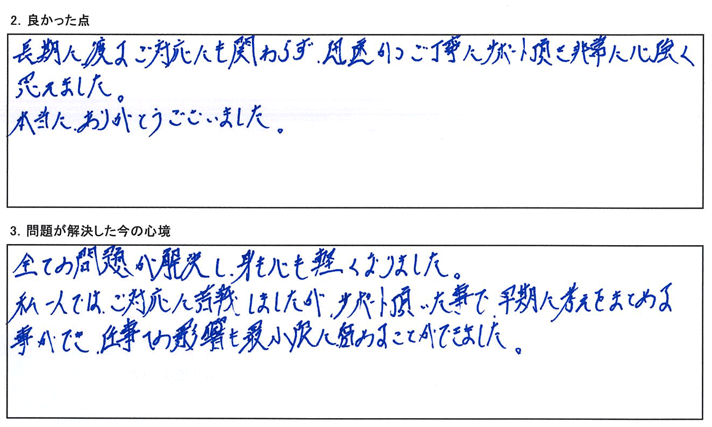 2. 良かった点
長期に渡るご対応にも関わらず、迅速かつご丁寧にサポート頂き非常に心強く
思えました。
本当に、ありがとうございました。
3. 問題が解決した今の心境
全ての問題が解決し、身も心も軽くなりました。
私一人では、ご対応に苦戦しましたが、サポート頂いた事で、早期に考えをまとめる
事ができ、仕事での影響も最小限に留めることができました。